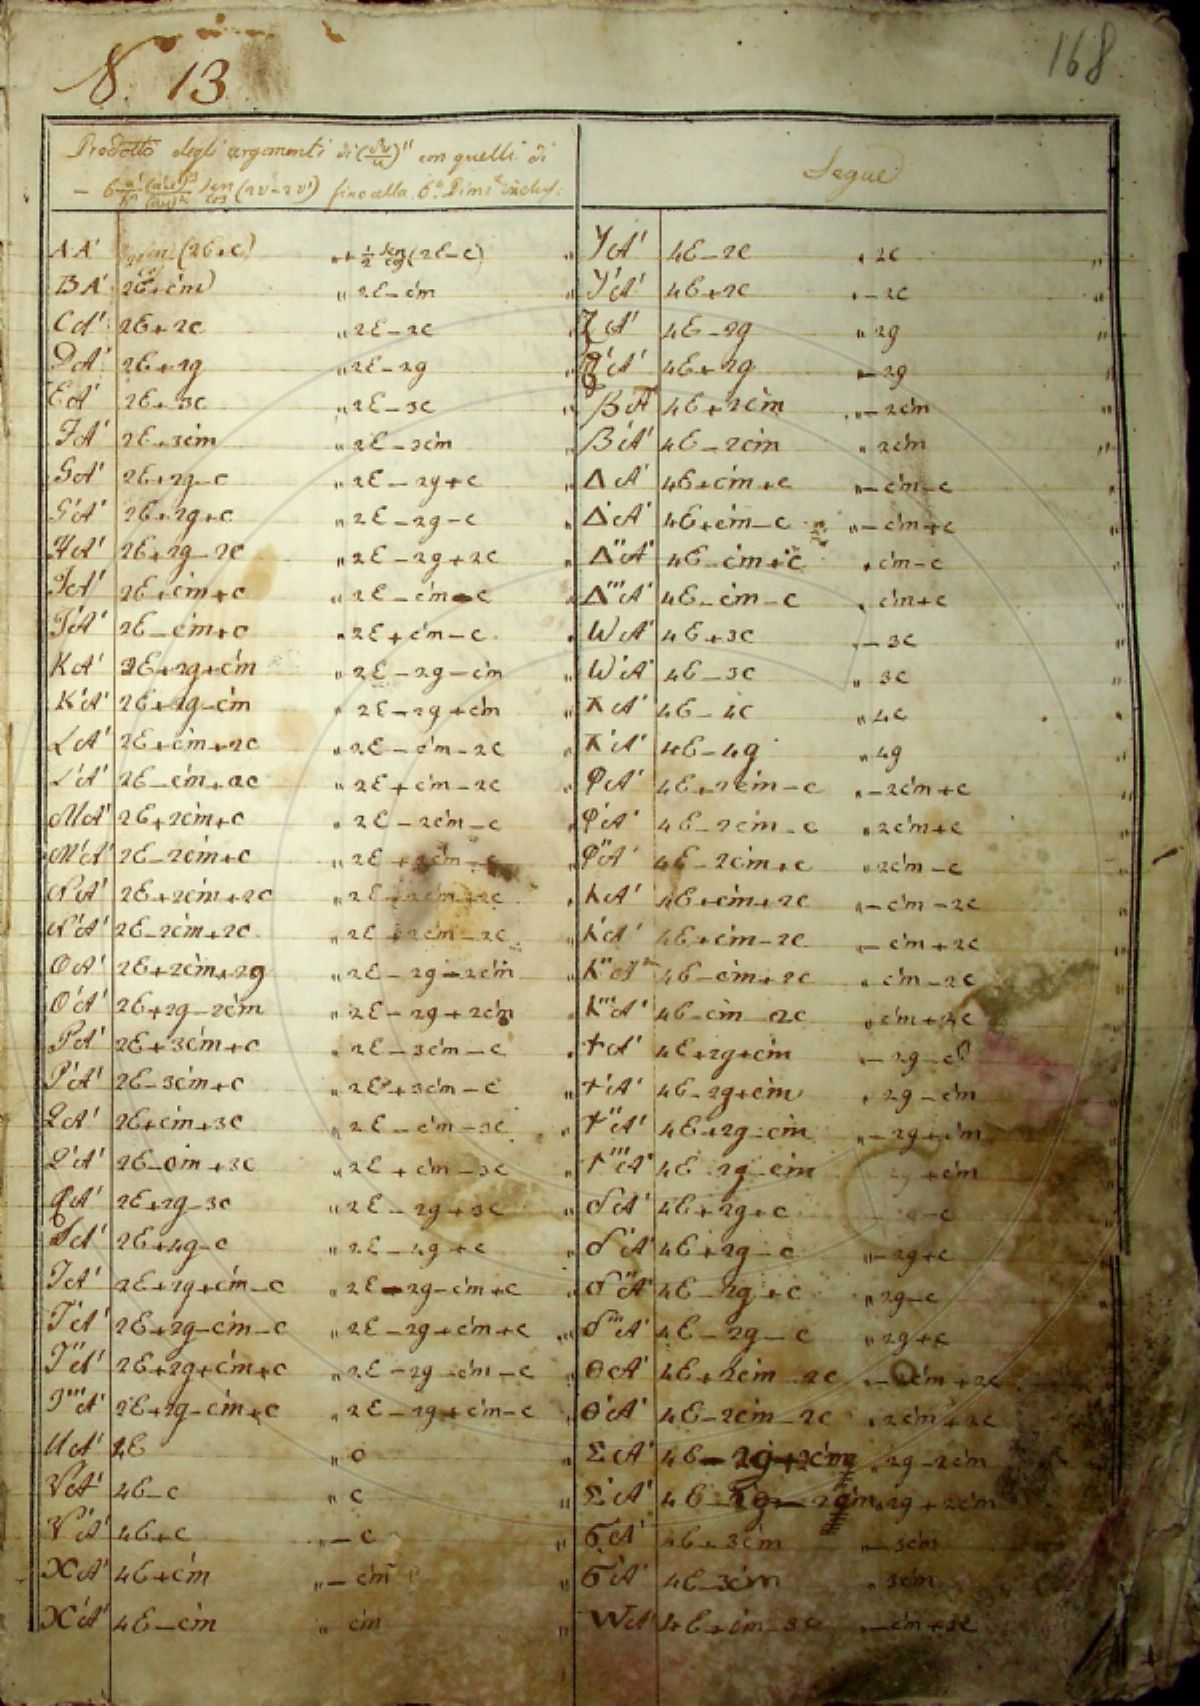 N. 13
168
Prodotto degli argomenti di (δu/u)" con quelli di
fino alla 6.ª Dims.e inclus.
Segue
AA' (2E+c) „ + 1/2 sen cos (2E-c) „
BA' 2E+c'm „ 2E-c'm „
CA' 2E+2c „ 2E-2c „
DA' 2E+2g „ 2E-2g „
EA' 2E+3c „ 2E-3c „
FA' 2E+3c'm „ 2E-3c'm „
GA' 2E+2g-c „ 2E-2g+c „
G'A' 2E+2g+c „ 2E-2g-c „
HA' 2E+2g-2c „ 2E-2g+2c „
IA' 2E+c'm+c „ 2E-c'm-c „
I'A' 2E-c'm+c „ 2E+c'm-c „
KA' 2E+2g+c'm „ 2E-2g-c'm „
K'A' 2E+2g-c'm „ 2E-2g+c'm „
LA' 2E+c'm+2c „ 2E-c'm-2c „
L'A' 2E-c'm+2c „ 2E+c'm-2c „
MA' 2E+2c'm+c „ 2E-2c'm-c „
M'A' 2E-2c'm+c „ 2E+2c'm-c „
NA' 2E+2c'm+2c „ 2E
N'A' 2E-2c'm+2c „ 2E+2c'm-2c „
OA' 2E+2c'm+2g „ 2E-2g-2c'm „
O'A' 2E+2g-2c'm „ 2E-2g+2c'm „
PA' 2E+3c'm+c „ 2E-3c'm-c „
P'A' 2E-3c'm+c „ 2E+3c'm-c „
LA' 2E+c'm+3c „ 2E-c'm-3c „
L'A' 2E-c'm+3c „ 2E+c'm-3c „
QA' 2E+2g-3c „ 2E-2g+3c „
SA' 2E+4g-c „ 2E-4g+c „
TA' 2E+2g+c'm-c „ 2E-2g-c'm+c „
T'A' 2E+2g-c'm-c „ 2E-2g+c'm+c „
T"A' 2E+2g+c'm+c „ 2E-2g-c'm-c „
T'''A' 2E+2g-c'm+c „ 2E-2g+c'm-c „
UA' 4E „ 0 „
VA' 4E-c „ c „
V'A' 4E+c „ -c „
XA' 4E+c'm „ -c'm „
X'A' 4E-c'm „ c'm „
YA' 4E-2c „ 2c „
Y'A' 4E+2c „ -2c „
ZA' 4E-2g „ 2g „
Z'A' 4E+2g „ -2g „
BA' 4E+2c'm „ -2c'm „
B'A' 4E-2c'm „ 2c'm „
ΔA' 4E+c'm+c „ -c'm-c „
Δ'A' 4E+c'm-c „ -c'm+c „
Δ"A' 4E-c'm+c „ c'm-c „
Δ'''A' 4E-c'm-c „ c'm+c „
WA' 4E+3c „ -3c „
W'A' 4E-3c „ 3c „
ΛA' 4E-4c „ 4c „
Λ'A' 4E-4g „ 4g „
φA' 4E+2c'm-c „ -2c'm+c „
φ'A' 4E-2c'm-c „ 2c'm+c „
φ"A' 4E-2c'm+c „ 2c'm-c „
hA' 4E+c'm+2c „ -c'm-2c „
h'A' 4E+c'm-2c „ -c'm+2c „
h"A' 4E-c'm+2c „ c'm-2c „
h'''A' 4E-c'm-2c „ c'm+2c „
+A' 4E+2g+c'm „ -2g-c'm
+'A' 4E-2g+c'm „ 2g-c'm
+"A' 4E+2g-c'm „ -2g+c'm
+'''A' 4E-2g-c'm 2g+c'm
δA' 4E+2g+c
δ'A' 4E+2g-c „ -2g+c
δ"A' 4E-2g+c „ 2g-c
δ'''A' 4E-2g-c „ 2g+c
θA' 4E+2c'm-2c „ -2c'm+2c
θ'A' 4E-2c'm-2c „ 2c'm+2c
ΣA' 4E-2g+2c'm „ 2g-2c'm
Σ'A' 4E-2g-2c'm „ 2g+2c'm
ϬA' 4E+3c'm „ -3c'm
Ϭ'A' 4E-3c'm „ 3c'm
WA' 4E+c'm-3c „ -c'm+3c